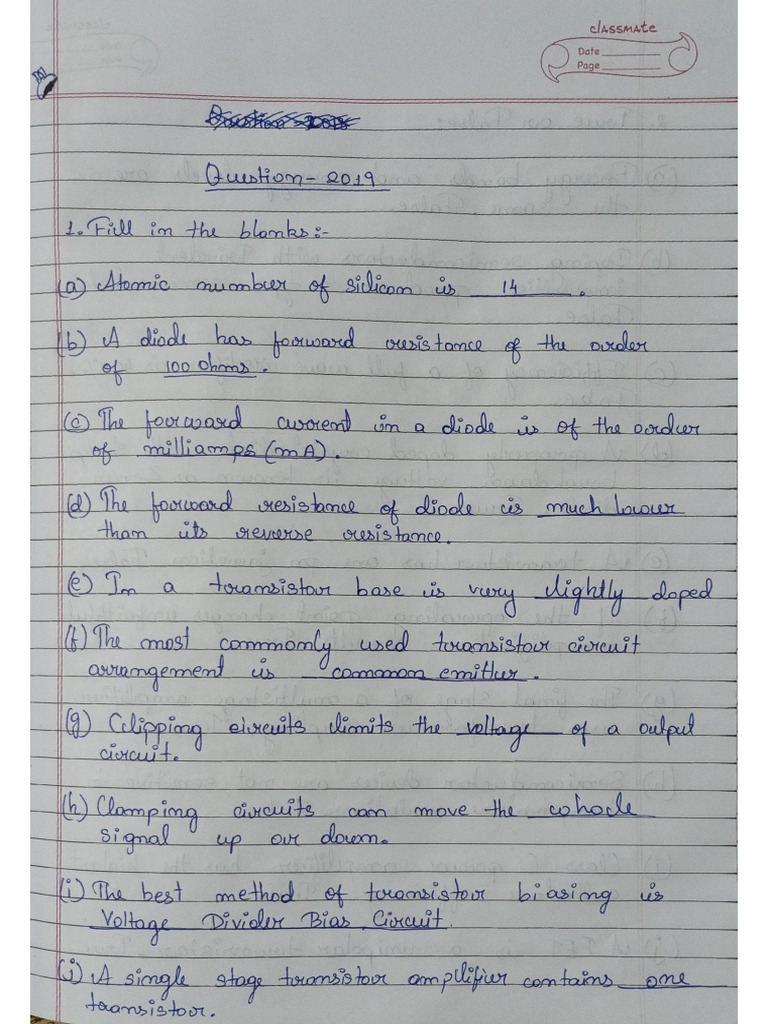 classmate
Date
Page
Question - 2019
1. Fill in the blanks :-
(a) Atomic number of silicon is 14 .
(b) A diode has forward resistance of the order
of 100 ohms .
(c) The forward current in a diode is of the order
of milliamps (mA) .
(d) The forward resistance of diode is much lower
than its reverse resistance.
(e) In a transistor base is very lightly doped
(f) The most commonly used transistor circuit
arrangement is common emitter .
(g) Clipping circuits limits the voltage of a output
circuit.
(h) Clamping circuits can move the whole
signal up or down.
(i) The best method of transistor biasing is
Voltage Divider Bias Circuit.
(j) A single stage transistor amplifier contains one
transistor.